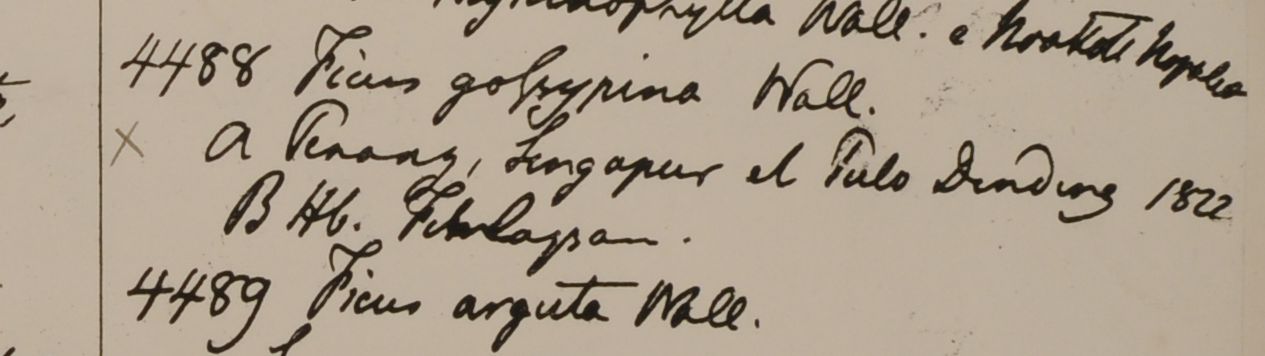 Wall. e
4488 Ficus gossypina Wall.
X a Penang, Singapur et Pulo Dinding 1822
B Hb. Finlayson.
4489 Ficus arguta Wall.